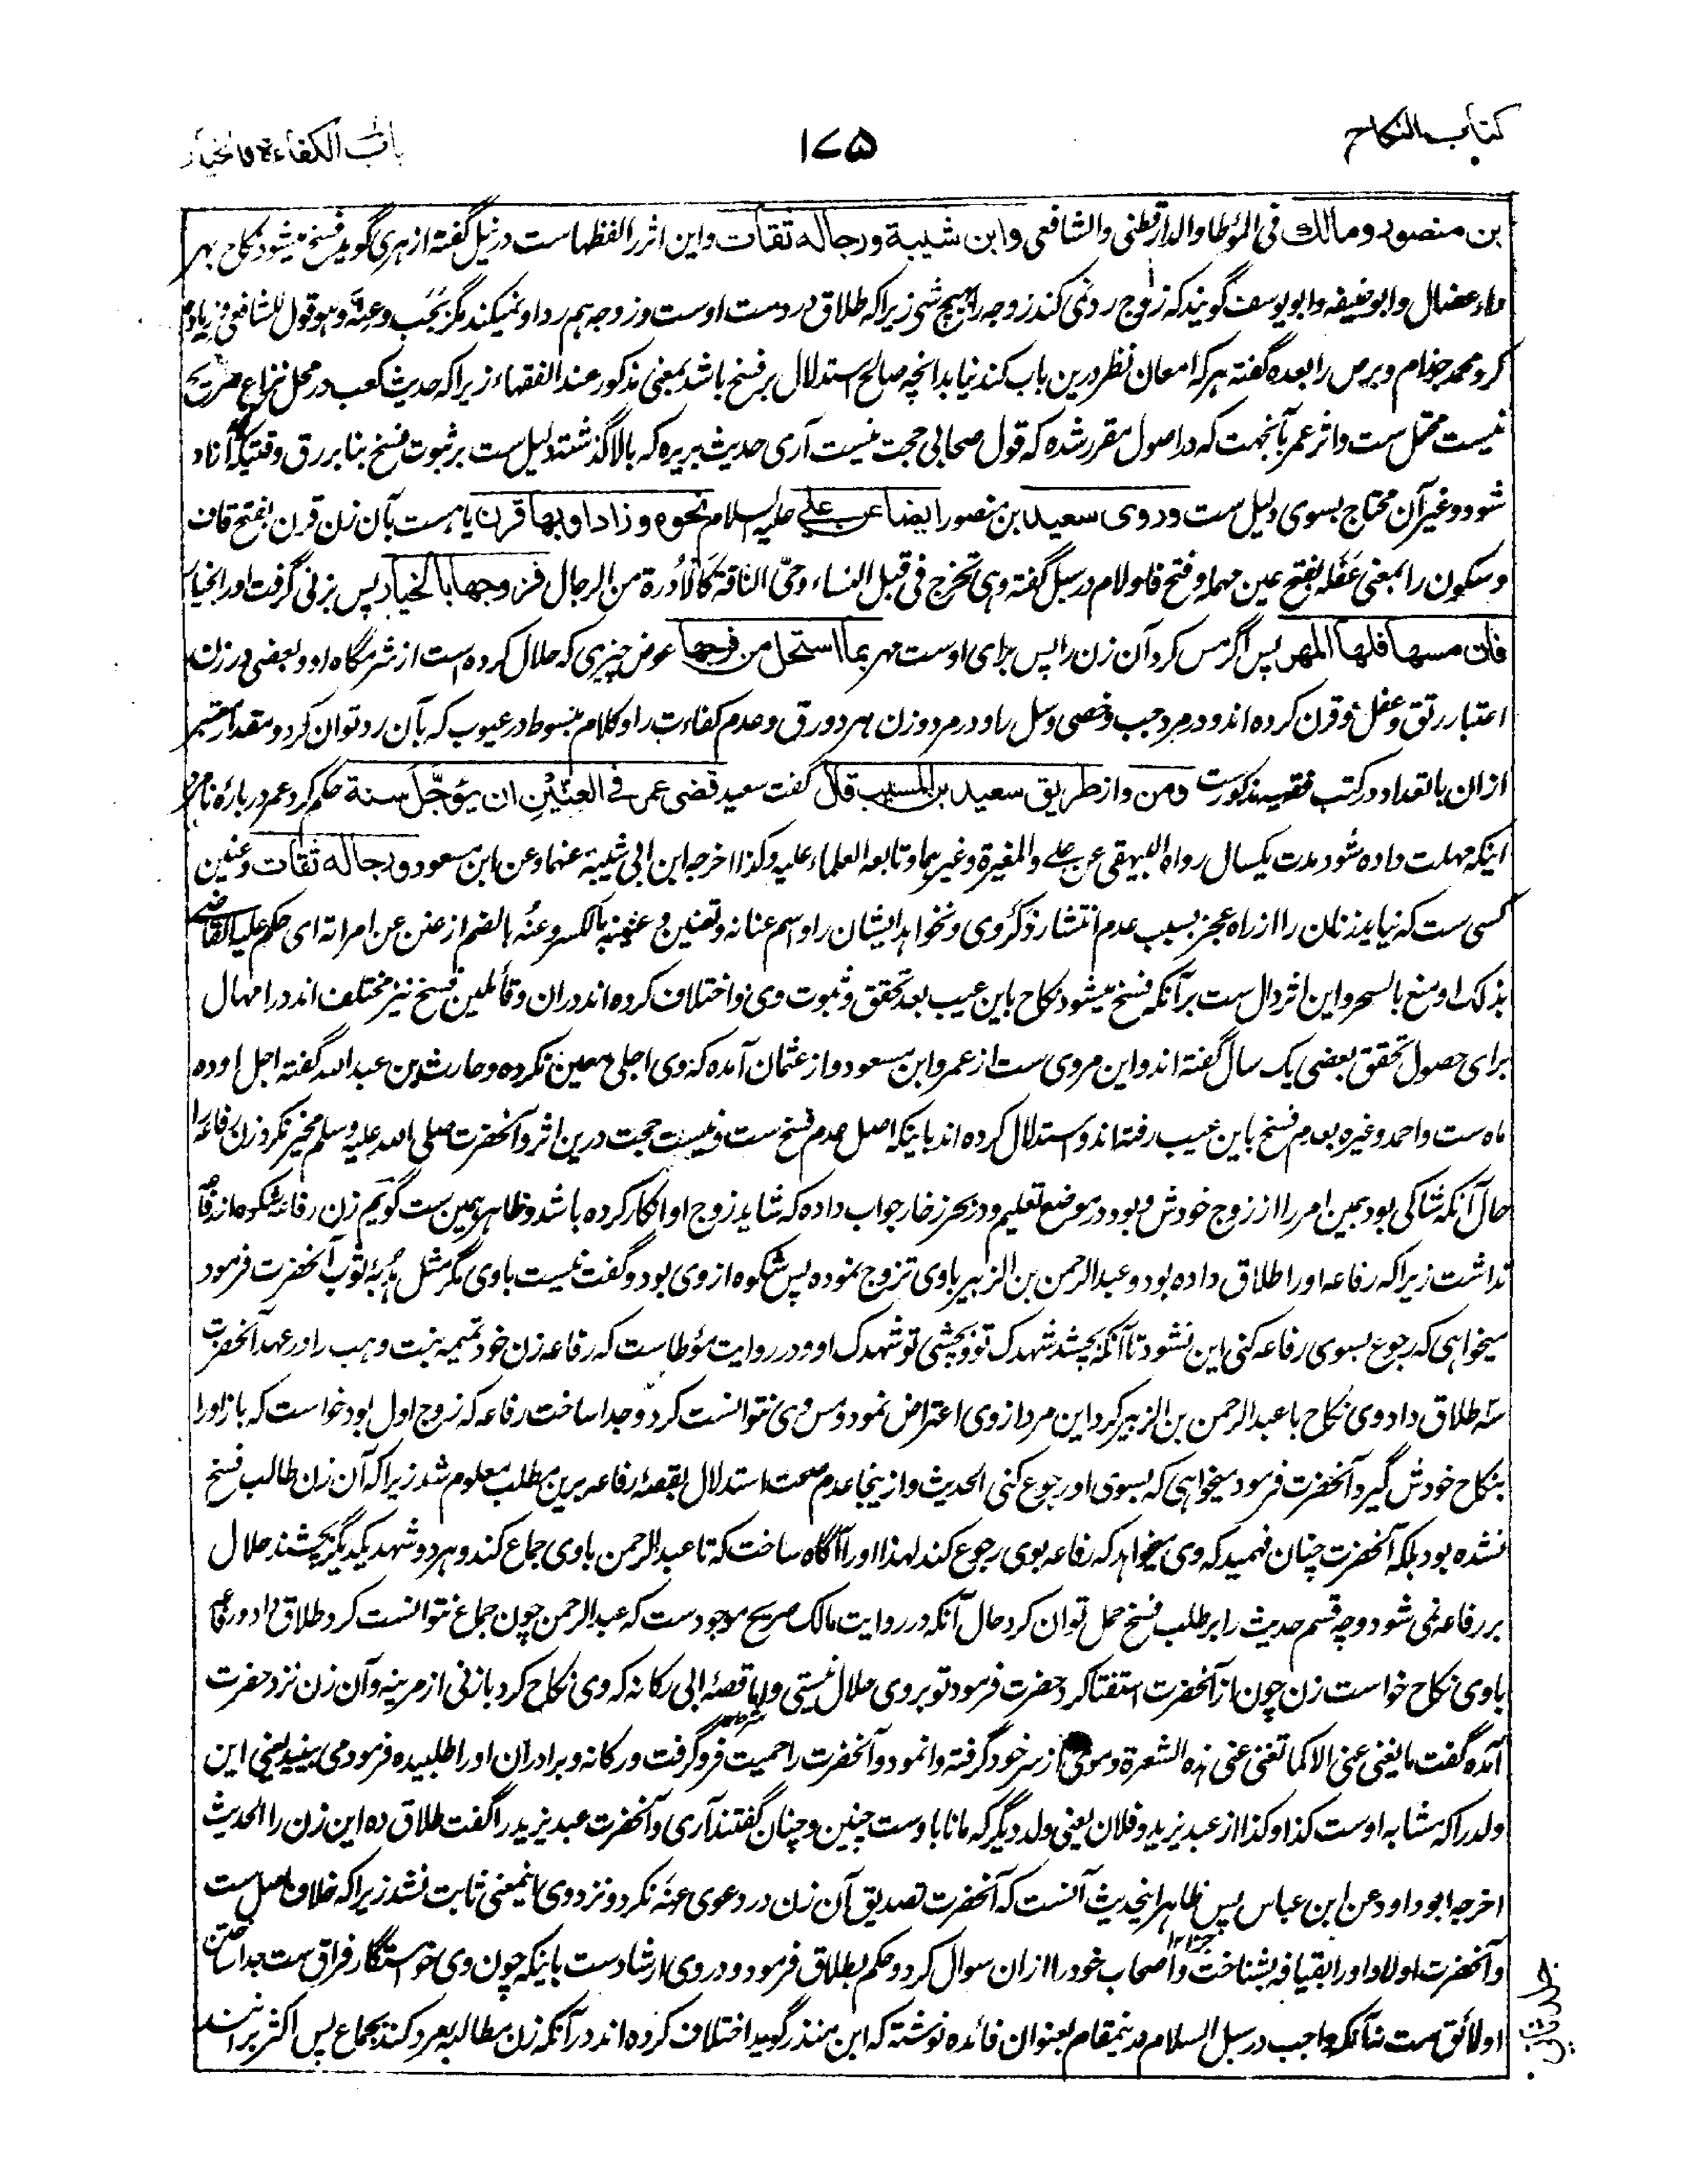 کتاب النکاح
۱۷۵
باب الکفاءة والخیار
بن منصور ومالك فی المؤطا والدارقطنی والشافعی وابن شیبة ورجاله ثقات واین اثر را لفظهاست در نیل گفته از هری گوید فسخ میشود نکاح بهر
داء عضال وابوحنیفه وابویوسف گویند که زوج رد نمی کند زوجه را بهیچ شی زیراکه طلاق در دست اوست وزوجه هم رد او نمیکند مگر بجب وعنة وهو قول للشافعی وزیاده
کرد محمد جذام وبرص را بعده گفته هر که امعان نظر درین باب کند نیابد انچه صالح استدلال بر فسخ باشد بمعنی مذکور عند الفقهاء زیراکه حدیث کعب در محل نزاع صریح
نیست محتمل ست واثر عمر بآنجهت که در اصول مقرر شده که قول صحابی حجت نیست آری حدیث بریره که بالا گذشته دلیل ست بر ثبوت فسخ بنا بر رق وقتیکه آزاد
شود وغیر آن محتاج بسوی دلیل ست وروی سعید بن منصور ایضا عن علی علیه السلام نحوه وزاد او بها قرن یا هست بآن زن قرن بفتح قاف
وسکون را بمعنی عفله بفتح عین مهمله وفتح فا ولام در سبل گفته وهی تخرج فی قبل النساء وحیّ الناقة کالأدرة من الرجال فزوجها بالخیار پس بزنی گرفت اورا بخیار
فان مسها فلها المهر پس اگر مس کرد آن زن را پس برای اوست مهر بما استحل من فرجها عوض چیزی که حلال کرده است از شرمگاه او وبعضی در زن
اعتبار رتق وعفل وقرن کرده اند ودر مرد جب وخصی وسل را ودر مرد وزن هر دو رق وعدم کفاءت را وکلام مبسوط در عیوب که بآن رد توان کرد ومقدار معتبر
ازان با تعداد در کتب فقهیه مذکورست ومن واز طریق سعید بن المسیب قال گفت سعید قضی عمر فی العنین ان یؤجل سنة حکم کرد عمر درباره نامرد
اینکه مهلت داده شود مدت یکسال رواه البیهقی عن علی والمغیرة وغیرهما وتابعه العلماء علیه وکذا اخرجه ابن ابی شیبة عنهما وعن ابن مسعود ورجاله ثقات وعنین
کسی ست که نیاید زنان را از راه عجز بسبب عدم انتشار ذکر وی ونخواهد ایشان را واسم عنانه وتعنین وعنینه بالکسر وعنه بالضم از عنن عن امراته ای حکم علیه القاضی
بذلک او منع بالسحر واین اثر دال ست بر آنکه فسخ میشود نکاح باین عیب بعد تحقق وثبوت وی واختلاف کرده اند دران وقائلین فسخ نیز مختلف اند در امهال
برای حصول تحقق بعضی یک سال گفته اند واین مروی ست از عمر وابن مسعود واز عثمان آمده که وی اجلی معین نکرده وحارث بن عبدالله گفته اجل او ده
ماه ست واحمد وغیره بعدم فسخ باین عیب رفته اند واستدلال کرده اند باینکه اصل عدم فسخ ست ونیست حجت درین اثر وآنحضرت صلی الله علیه وسلم مخیر نکرد زن رفاعه را
حال آنکه شاکی بود همین امر را از زوج خودش وبود در موضع تعلیم ودر بحر زخار جواب داده که شاید زوج او انکار کرده باشد وظاهر همین ست گویم زن رفاعه شکوه از رفاعه
نداشت زیراکه رفاعه اورا طلاق داده بود وعبدالرحمن بن الزبیر باوی تزوج نموده پس شکوه از وی بود وگفت نیست باوی مگر مثل هدبه ثوب آنحضرت فرمود
میخواهی که رجوع بسوی رفاعه کنی این نشود تا آنکه بچشد شهدک تو وبچشی تو شهدک او ودر روایت مؤطاست که رفاعه زن خود تمیمه بنت وهب را در عهد آنحضرت
سه طلاق داد وی نکاح با عبدالرحمن بن الزبیر کرد این مرد از وی اعتراض نمود ومس وی نتوانست کرد وجدا ساخت رفاعه که زوج اول بود خواست که باز اورا
بنکاح خودش گیرد آنحضرت فرمود میخواهی که بسوی او رجوع کنی الحدیث وازینجا عدم صحت استدلال بقصهٔ رفاعه برین مطلب معلوم شد زیراکه آن زن طالب فسخ
نشده بود بلکه آنحضرت چنان فهمید که وی میخواهد که رفاعه بوی رجوع کند لهذا اورا آگاه ساخت که تا عبدالرحمن باوی جماع کند وهر دو شهد یکدیگر بچشند حلال
بر رفاعه نمی شود وچه قسم حدیث را بر طلب فسخ حمل توان کرد حال آنکه در روایت مالک صریح موجودست که عبدالرحمن چون جماع نتوانست کرد طلاق داد ورفاعه
باوی نکاح خواست زن چون از آنحضرت استفتا کرد حضرت فرمود تو بر وی حلال نیستی واما قصهٔ ابی رکانه که وی نکاح کرد بازنی از مزینه وآن زن نزد حضرت
آمده گفت ما یغنی عنی الا کما تغنی عنی هذه الشعرة وموی از سر خود گرفته وانمود وآنحضرت را حمیت فرو گرفت ورکانه وبرادران اورا طلبیده فرمود می بینید یعنی این
ولد را که مشابه اوست کذا وکذا از عبد یزید وفلان یعنی ولد دیگر که مانا باوست چنین وچنان گفتند آری وآنحضرت عبد یزید را گفت طلاق ده این زن را الحدیث
اخرجه ابو داود عن ابن عباس پس ظاهر اینحدیث آنست که آنحضرت تصدیق آن زن در دعوی عنه نکرد ونزد وی اینمعنی ثابت نشد زیراکه خلاف اصل ست
وآنحضرت اولاد اورا بقیافه بشناخت واصحاب خود را ازان سوال کرد وحکم بطلاق فرمود ودر وی ارشادست باینکه چون وی خواستگار فراق ست جدا ساختن
او لائق ست نه آنکه واجب در سبل السلام درینمقام بعنوان فائده نوشته که ابن منذر گوید اختلاف کرده اند در آنکه زن مطالبه مرد کند بجماع پس اکثر برانند
جلد ثانی